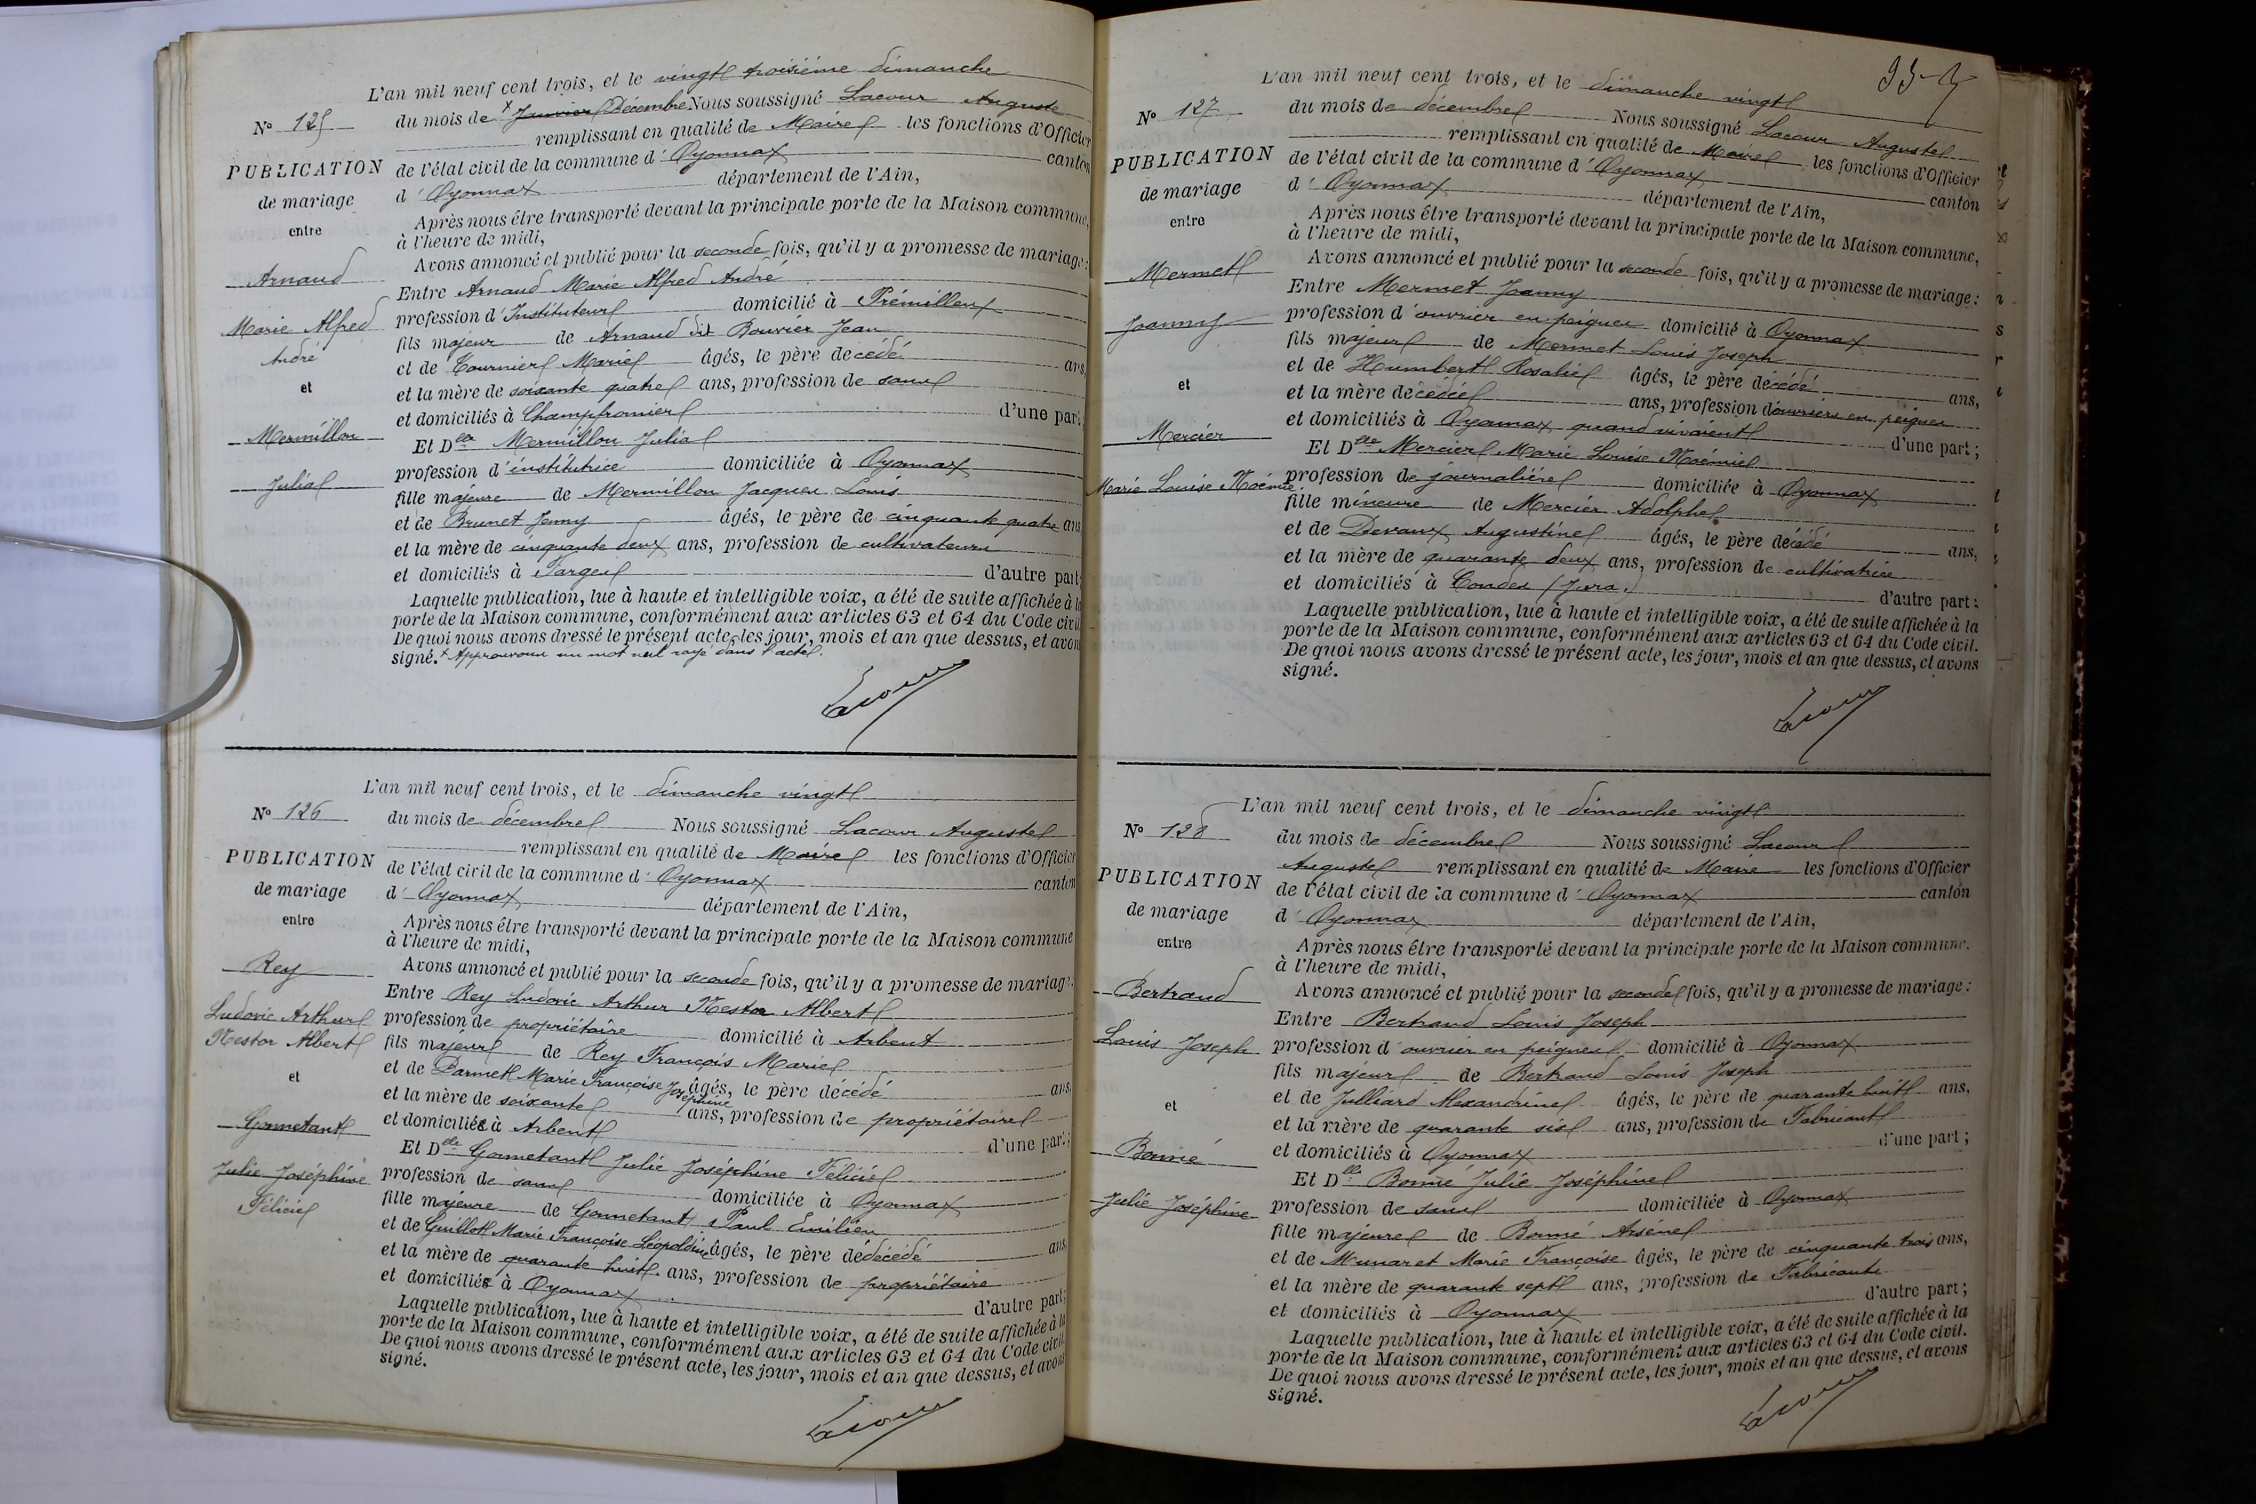 L'an mil neuf cent trois, et le vingt troisième dimanche
du mois de × Janvier Décembre Nous soussigné Lacour Auguste
remplissant en qualité de Maire les fonctions d'Officier
de l'état civil de la commune d' Oyonnax canton
d' Oyonnax département de l'Ain,
Après nous être transporté devant la principale porte de la Maison commune,
à l'heure de midi,
Avons annoncé et publié pour la seconde fois, qu'il y a promesse de mariage:
Entre Arnaud Marie Alfred André
profession d'Instituteur domicilié à Prémillieu
fils majeur de Arnaud dit Bouvier Jean
et de Tournier Marie âgés, le père décédé ans,
et la mère de soixante quatre ans, profession de sans
et domiciliés à Champfromier d'une part
Et Delle Mermillon Julia
profession d'institutrice domiciliée à Oyonnax
fille majeure de Mermillon Jacques Louis
et de Brunet Jenny âgés, le père de cinquante quatre ans
et la mère de cinquante deux ans, profession de cultivateurs
et domiciliés à Farges d'autre part;
Laquelle publication, lue à haute et intelligible voix, a été de suite affichée à la
porte de la Maison commune, conformément aux articles 63 et 64 du Code civil
De quoi nous avons dressé le présent acte, les jour, mois et an que dessus, et avons
signé. × Approuvons un mot nul rayé dans l'acte.
Lacour
No 125
PUBLICATION
de mariage
entre
Arnaud
Marie Alfred
André
et
Mermillon
Julia
L'an mil neuf cent trois, et le dimanche vingt
du mois de décembre Nous soussigné Lacour Auguste
remplissant en qualité de Maire les fonctions d'Officier
de l'état civil de la commune d' Oyonnax canton
d' Oyonnax département de l'Ain,
Après nous être transporté devant la principale porte de la Maison commune
à l'heure de midi,
Avons annoncé et publié pour la seconde fois, qu'il y a promesse de mariage.
Entre Rey Ludovic Arthur Nestor Albert
profession de propriétaire domicilié à Arbent
fils majeur de Rey François Marie
et de Darmet Marie Françoise Joséphine âgés, le père décédé ans,
et la mère de soixante ans, profession de propriétaire
et domiciliée à Arbent d'une part;
Et Delle Gonnetant Julie Joséphine Félicie
profession de sans domiciliée à Oyonnax
fille majeure de Gonnetant Paul Emilien
et de Guillot Marie Françoise Léopoldine âgés, le père dédécédé ans,
et la mère de quarante huit ans, profession de propriétaire
et domiciliée à Oyonnax d'autre part;
Laquelle publication, lue à haute et intelligible voix, a été de suite affichée à la
porte de la Maison commune, conformément aux articles 63 et 64 du Code civil
De quoi nous avons dressé le présent acte, les jour, mois et an que dessus, et avons
signé.
Lacour
No 126
PUBLICATION
de mariage
entre
Rey
Ludovic Arthur
Nestor Albert
et
Gonnetant
Julie Joséphine
Félicie
L'an mil neuf cent trois, et le dimanche vingt
du mois de décembre Nous soussigné Lacour Auguste
remplissant en qualité de Maire les fonctions d'Officier
de l'état civil de la commune d' Oyonnax canton
d' Oyonnax département de l'Ain,
Après nous être transporté devant la principale porte de la Maison commune,
à l'heure de midi,
Avons annoncé et publié pour la seconde fois, qu'il y a promesse de mariage:
Entre Mermet Joanny
profession d'ouvrier en peignes domicilié à Oyonnax
fils majeur de Mermet Louis Joseph
et de Humbert Rosalie âgés, le père décédé ans,
et la mère décédée ans, profession d'ouvriers en peignes
et domiciliés à Oyonnax quand vivaient d'une part;
Et Delle Mercier Marie Louise Noémie
profession de journalière domiciliée à Oyonnax
fille mineure de Mercier Adolphe
et de Devaux Augustine âgés, le père décédé ans,
et la mère de quarante deux ans, profession de cultivatrice
et domiciliés à Condes (Jura) d'autre part:
Laquelle publication, lue à haute et intelligible voix, a été de suite affichée à la
porte de la Maison commune, conformément aux articles 63 et 64 du Code civil.
De quoi nous avons dressé le présent acte, les jour, mois et an que dessus, et avons
signé.
Lacour
No 127
PUBLICATION
de mariage
entre
Mermet
Joanny
et
Mercier
Marie Louise Noémie
L'an mil neuf cent trois, et le dimanche vingt
du mois de décembre Nous soussigné Lacour
Auguste remplissant en qualité de Maire les fonctions d'Officier
de l'état civil de la commune d' Oyonnax canton
d' Oyonnax département de l'Ain,
Après nous être transporté devant la principale porte de la Maison commune.
à l'heure de midi,
Avons annoncé et publié pour la seconde fois, qu'il y a promesse de mariage:
Entre Bertrand Louis Joseph
profession d'ouvrier en peignes domicilié à Oyonnax
fils majeur de Bertrand Louis Joseph
et de Julliard Alexandrine âgés, le père de quarante huit ans,
et la mère de quarante six ans, profession de Fabricant
et domiciliés à Oyonnax d'une part;
Et Dlle Bonné Julie Joséphine
profession de sans domiciliée à Oyonnax
fille majeure de Bonné Arsène
et de Munaret Marie Françoise âgés, le père de cinquante trois ans,
et la mère de quarante sept ans, profession de Fabricants
et domiciliés à Oyonnax d'autre part;
Laquelle publication, lue à haute et intelligible voix, a été de suite affichée à la
porte de la Maison commune, conformément aux articles 63 et 64 du Code civil.
De quoi nous avons dressé le présent acte, les jour, mois et an que dessus, et avons
signé.
Lacour
No 128
PUBLICATION
de mariage
entre
Bertrand
Louis Joseph
et
Bonné
Julie Joséphine